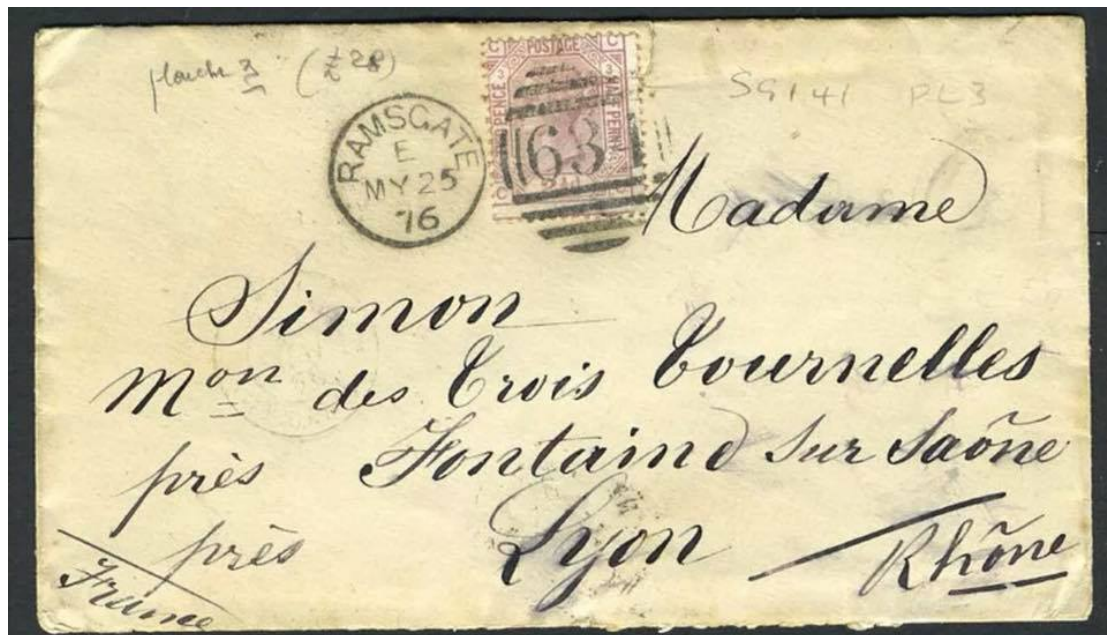 planche 3 (£28)
SG141 PL3
C POSTAGE C
3 3
PENCE HALF PENNY
63
RAMSGATE
E
MY 25
76
Madame
Simon
Mon des Trois Tournelles
près Fontaine sur Saône
près Lyon Rhône
France